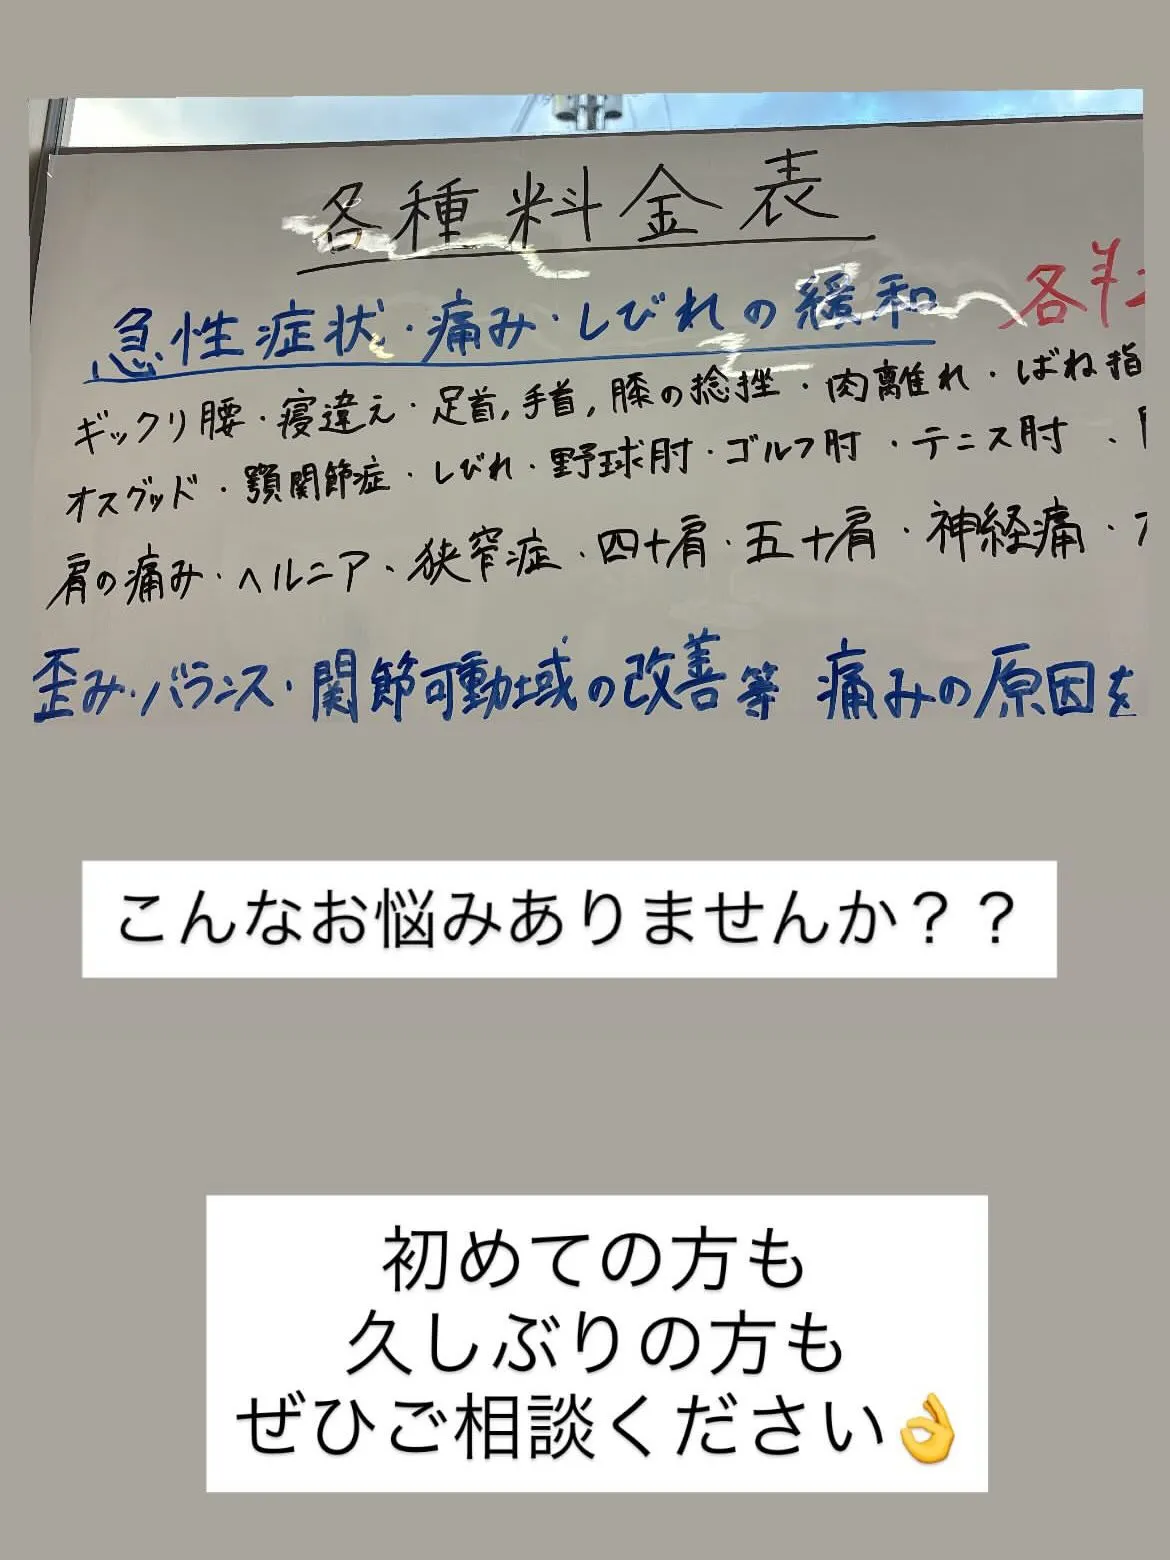 各種料金表
急性症状・痛み・しびれの緩和 各
ギックリ腰・寝違え・足首,手首,膝の捻挫・肉離れ・ばね指
オスグッド・顎関節症・しびれ・野球肘・ゴルフ肘・テニス肘・
肩の痛み・ヘルニア・狭窄症・四十肩・五十肩・神経痛・
歪み・バランス・関節可動域の改善等 痛みの原因を
こんなお悩みありませんか？？
初めての方も
久しぶりの方も
ぜひご相談ください👌